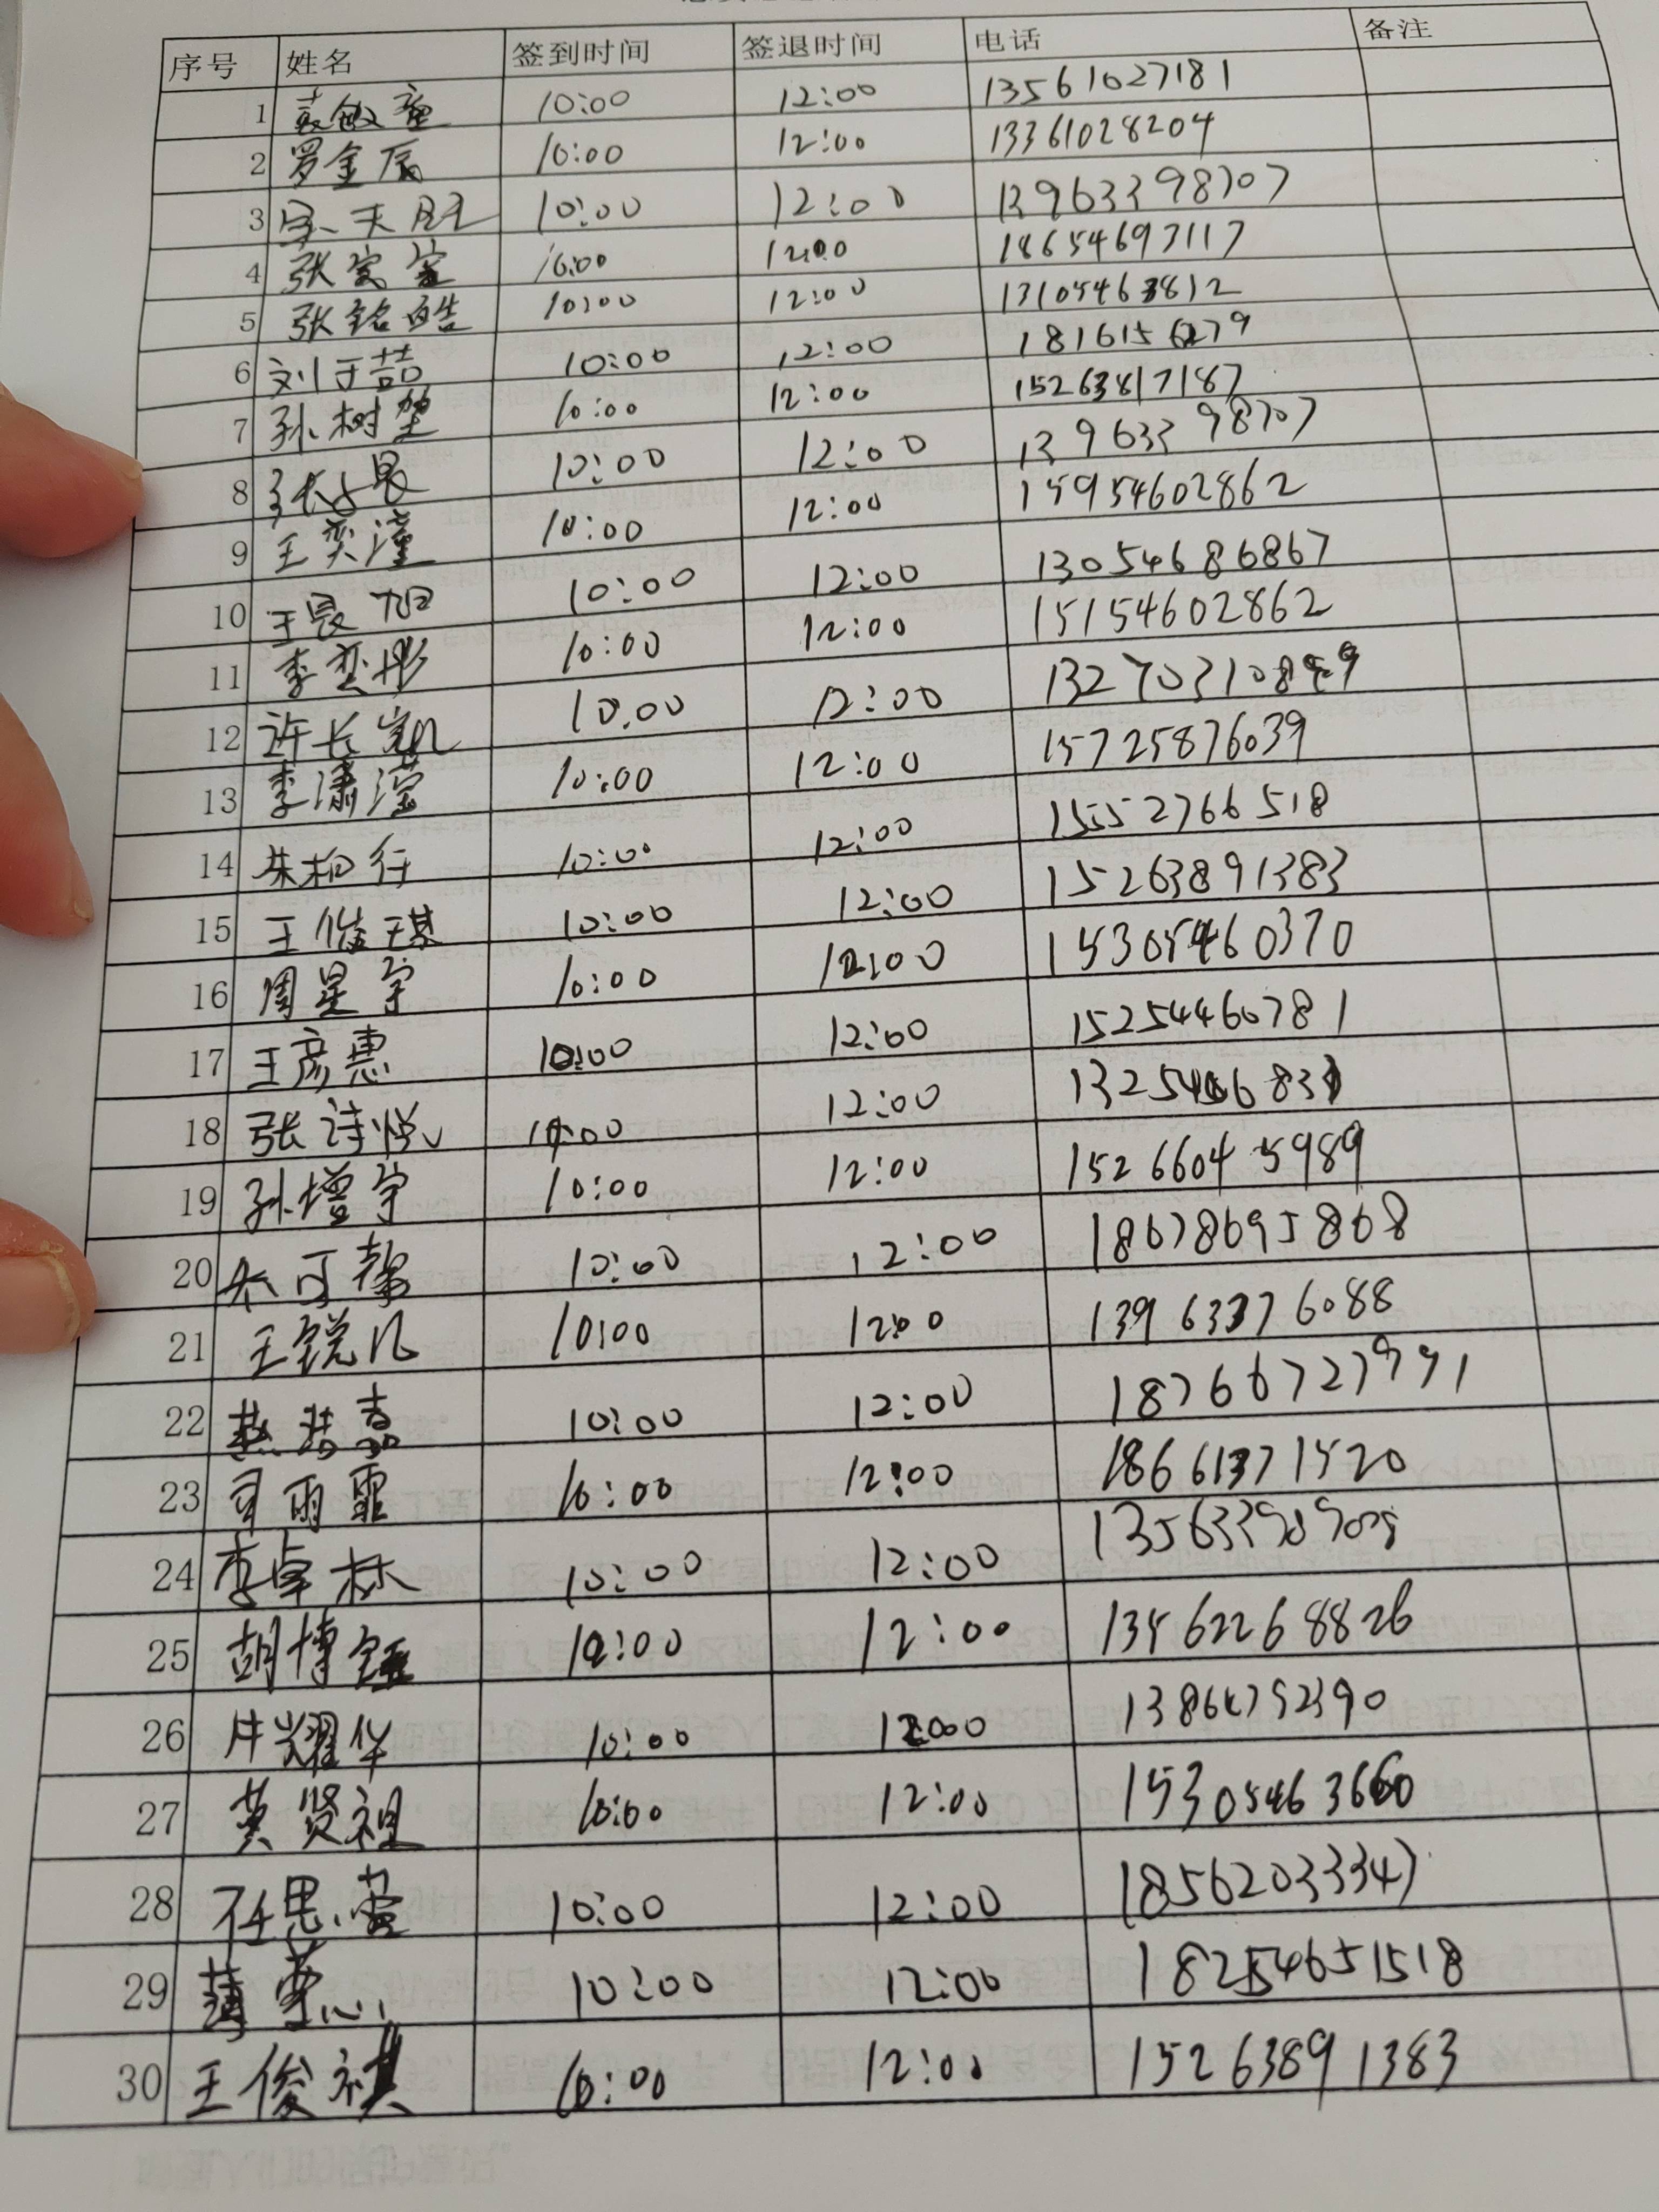 序号 姓名 签到时间 签退时间 电话 备注
1 袁敏童 10:00 12:00 13561027181
2 罗金辰 10:00 12:00 13361028204
3 天 10:00 12:00 13963398707
4 张 10:00 12:00 18654697117
5 张铭皓 10:00 12:00 13105463812
6 刘于喆 10:00 12:00
7 孙树堃 10:00 12:00 15263817187
8 10:00 12:00 13963398707
9 王奕潼 10:00 12:00 15954602862
10 王晨旭 10:00 12:00 13054686867
11 李奕彤 10:00 12:00 15154602862
12 许长凯 10:00 12:00
13 李潇滢 10:00 12:00 15725876039
14 朱柏行 10:00 12:00 15552766518
15 王俊琪 10:00 12:00 15263891383
16 周星宇 10:00 12:00 15305460370
17 王彦惠 10:00 12:00 15254460781
18 张诗悦 10:00 12:00
19 孙增宇 10:00 12:00 15266045989
20 可馨 10:00 12:00 18678695868
21 王锐凡 10:00 12:00 13963376088
22 嘉 10:00 12:00 18766727991
23 司雨霏 10:00 12:00 18661371520
24 李卓林 10:00 12:00
25 胡博钰 10:00 12:00 13456226 8826
26 耀华 10:00 12:00
27 黄贤祖 10:00 12:00 15305463660
28 任思萱 10:00 12:00 18562033347
29 薄 10:00 12:00 18254651518
30 王俊祺 10:00 12:00 15263891383